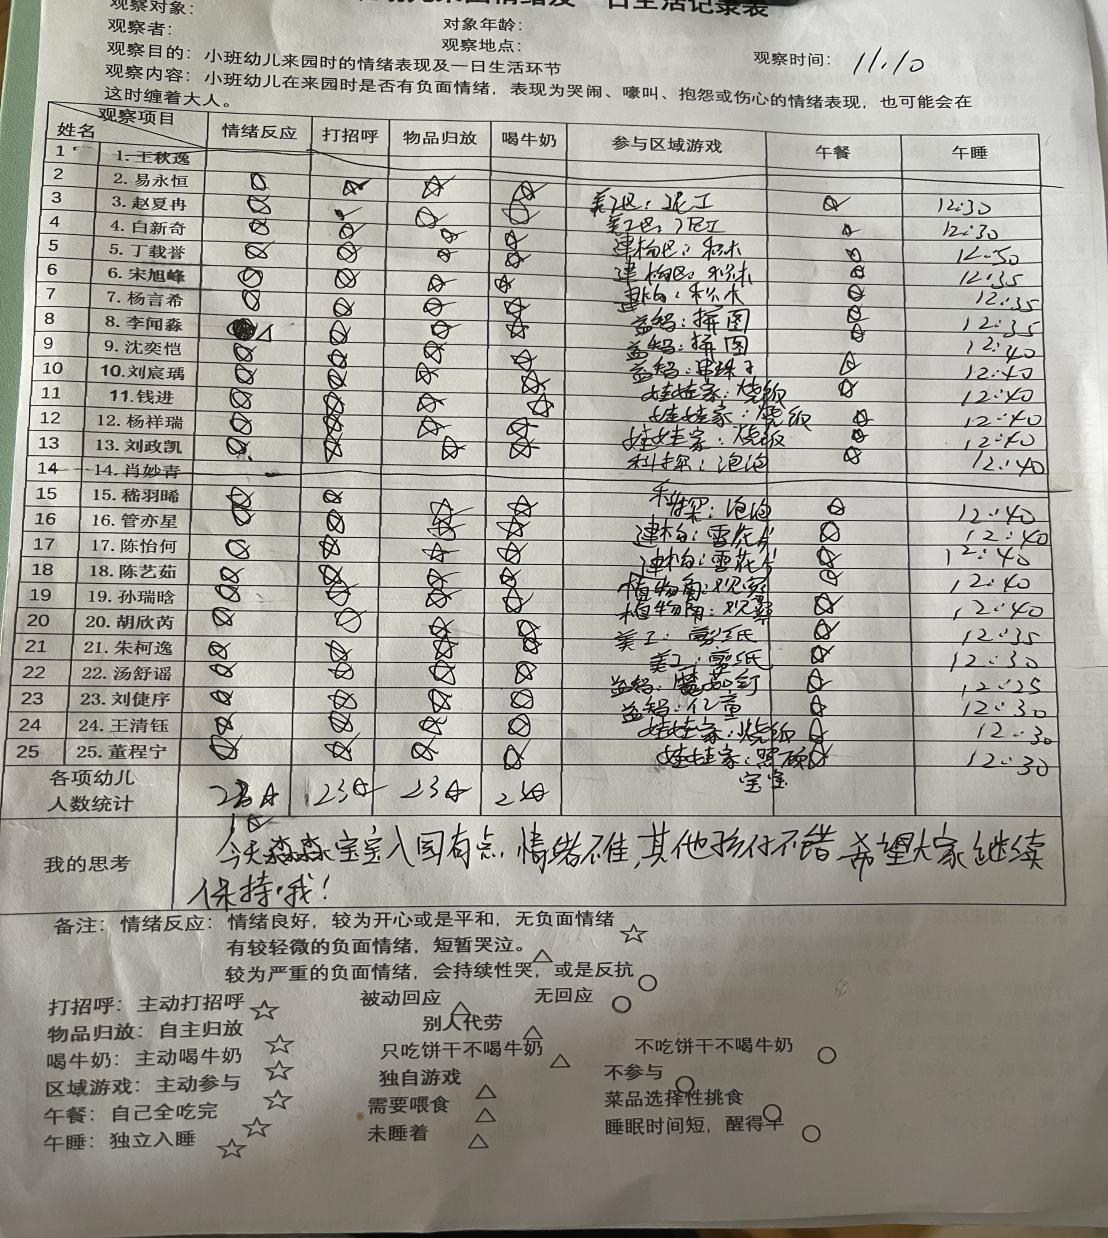 观察对象：
对象年龄：
观察者：
观察地点：
观察时间：11.10
观察目的：小班幼儿来园时的情绪表现及一日生活环节
观察内容：小班幼儿在来园时是否有负面情绪，表现为哭闹、嚎叫、抱怨或伤心的情绪表现，也可能会在
这时缠着大人。
观察项目 姓名 情绪反应 打招呼 物品归放 喝牛奶 参与区域游戏 午餐 午睡
1 1. 王秋逸
2 2. 易永恒 ☆ ☆ ☆ ☆ 美工区：泥工 ☆ 12:30
3 3. 赵夏冉 ☆ ☆ ☆ ☆ 美工区：泥工 ☆ 12:30
4 4. 白新奇 ☆ ☆ ☆ ☆ 建构区：积木 ☆ 12:50
5 5. 丁载誉 ☆ ☆ ☆ ☆ 建构区：积木 ☆ 12:35
6 6. 宋旭峰 ☆ ☆ ☆ ☆ 建构：积木 ☆ 12:35
7 7. 杨言希 ☆ ☆ ☆ ☆ 益智：拼图 ☆ 12:35
8 8. 李闻淼 △ ☆ ☆ ☆ 益智：拼图 ☆ 12:40
9 9. 沈奕恺 ☆ ☆ ☆ ☆ 益智：串珠子 ☆ 12:40
10 10. 刘宸瑀 ☆ ☆ ☆ ☆ 娃娃家：烧饭 ☆ 12:40
11 11. 钱进 ☆ ☆ ☆ ☆ 娃娃家：烧饭 ☆ 12:40
12 12. 杨祥瑞 ☆ ☆ ☆ ☆ 娃娃家：烧饭 ☆ 12:40
13 13. 刘政凯 ☆ ☆ ☆ ☆ 科探：泡泡 ☆ 12:40
14 14. 肖妙青
15 15. 嵇羽晞 ☆ ☆ ☆ ☆ 科探：泡泡 ☆ 12:40
16 16. 管亦星 ☆ ☆ ☆ ☆ 建构：雪花片 ☆ 12:40
17 17. 陈怡何 ☆ ☆ ☆ ☆ 建构：雪花片 ☆ 12:40
18 18. 陈艺茹 ☆ ☆ ☆ ☆ 植物角：观察 ☆ 12:40
19 19. 孙瑞晗 ☆ ☆ ☆ ☆ 植物角：观察 ☆ 12:40
20 20. 胡欣芮 ☆ ☆ ☆ ☆ 美工：剪纸 ☆ 12:35
21 21. 朱柯逸 ☆ ☆ ☆ ☆ 美工：剪纸 ☆ 12:30
22 22. 汤舒谣 ☆ ☆ ☆ ☆ 益智：蘑菇钉 ☆ 12:25
23 23. 刘倢序 ☆ ☆ ☆ ☆ 益智：亿童 ☆ 12:30
24 24. 王清钰 ☆ ☆ ☆ ☆ 娃娃家：烧饭 ☆ 12:30
25 25. 董程宁 ☆ ☆ ☆ ☆ 娃娃家：照顾宝宝 ☆ 12:30
各项幼儿
人数统计 23☆ 23☆ 23☆
我的思考 今天淼淼宝宝入园有点情绪不佳，其他孩仔不错，希望大家继续
保持哦！
备注：情绪反应：情绪良好，较为开心或是平和，无负面情绪☆
有较轻微的负面情绪，短暂哭泣。△
较为严重的负面情绪，会持续性哭，或是反抗○
打招呼：主动打招呼☆ 被动回应△ 无回应○
物品归放：自主归放☆ 别人代劳△
喝牛奶：主动喝牛奶☆ 只吃饼干不喝牛奶△ 不吃饼干不喝牛奶○
区域游戏：主动参与☆ 独自游戏△ 不参与○
午餐：自己全吃完☆ 需要喂食△ 菜品选择性挑食○
午睡：独立入睡☆ 未睡着△ 睡眠时间短，醒得早○